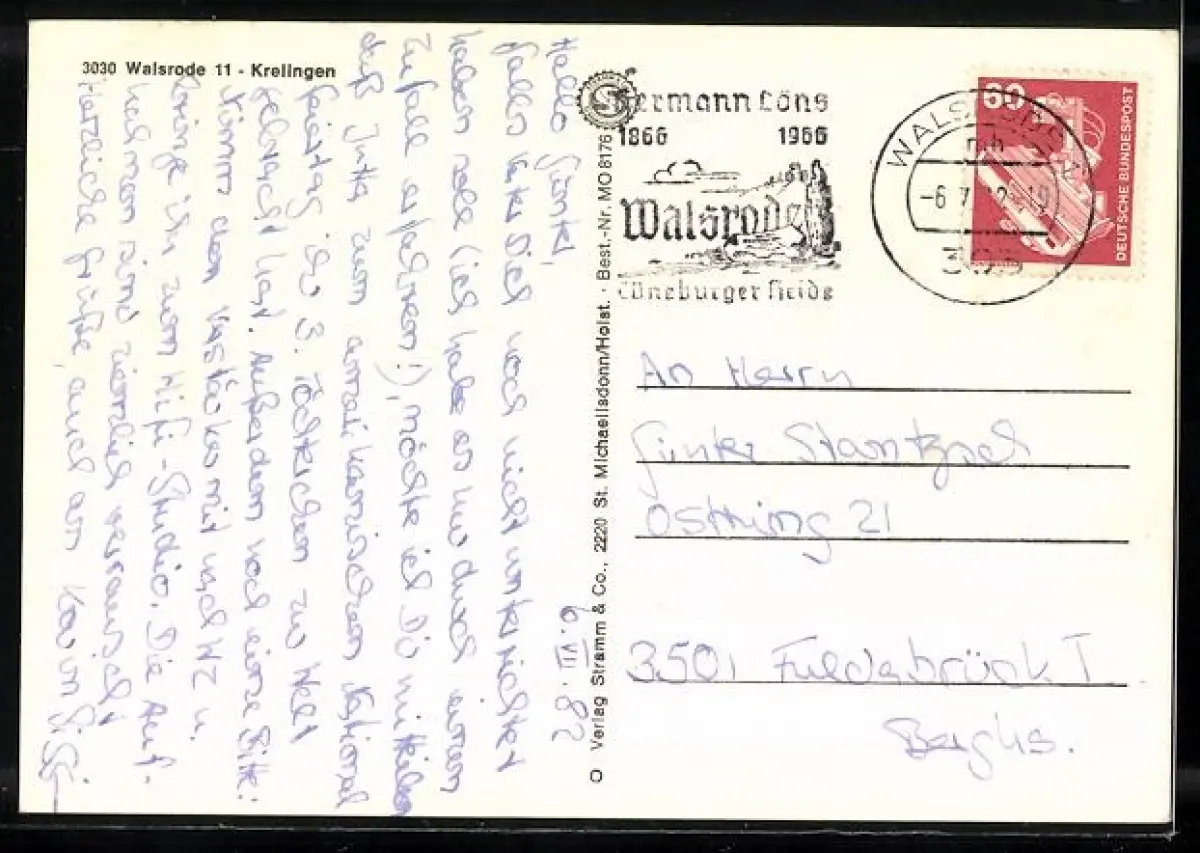 3030 Walsrode 11 - Krelingen
Hallo Günter,
6. VII. 82
falls Vater Dich noch nicht unterrichtet
haben sollte (ich habe es nur durch einen
Zufall erfahren!), möchte ich Dir mitteilen
daß Jutta zum amerikanischen National
feiertag ihr 3. Töchterchen zur Welt
gebracht hat. Außerdem noch eine Bitte:
Nimm den Verstärker mit nach WZ u.
bringe ihn zum Hifi-Studio. Die Auf-
nahmen sind ziemlich verrauscht
Herzliche Grüße, auch an Karin
Verlag Stramm & Co., 2220 St. Michaelisdonn/Holst. · Best.-Nr. MO 8176
Hermann Löns
1866 1966
Walsrode
Lüneburger Heide
WALSRODE
-6.7.82-19
60
DEUTSCHE BUNDESPOST
An Herrn
Günter
Ostring 21
3501 Fuldabrück I
Berghs.